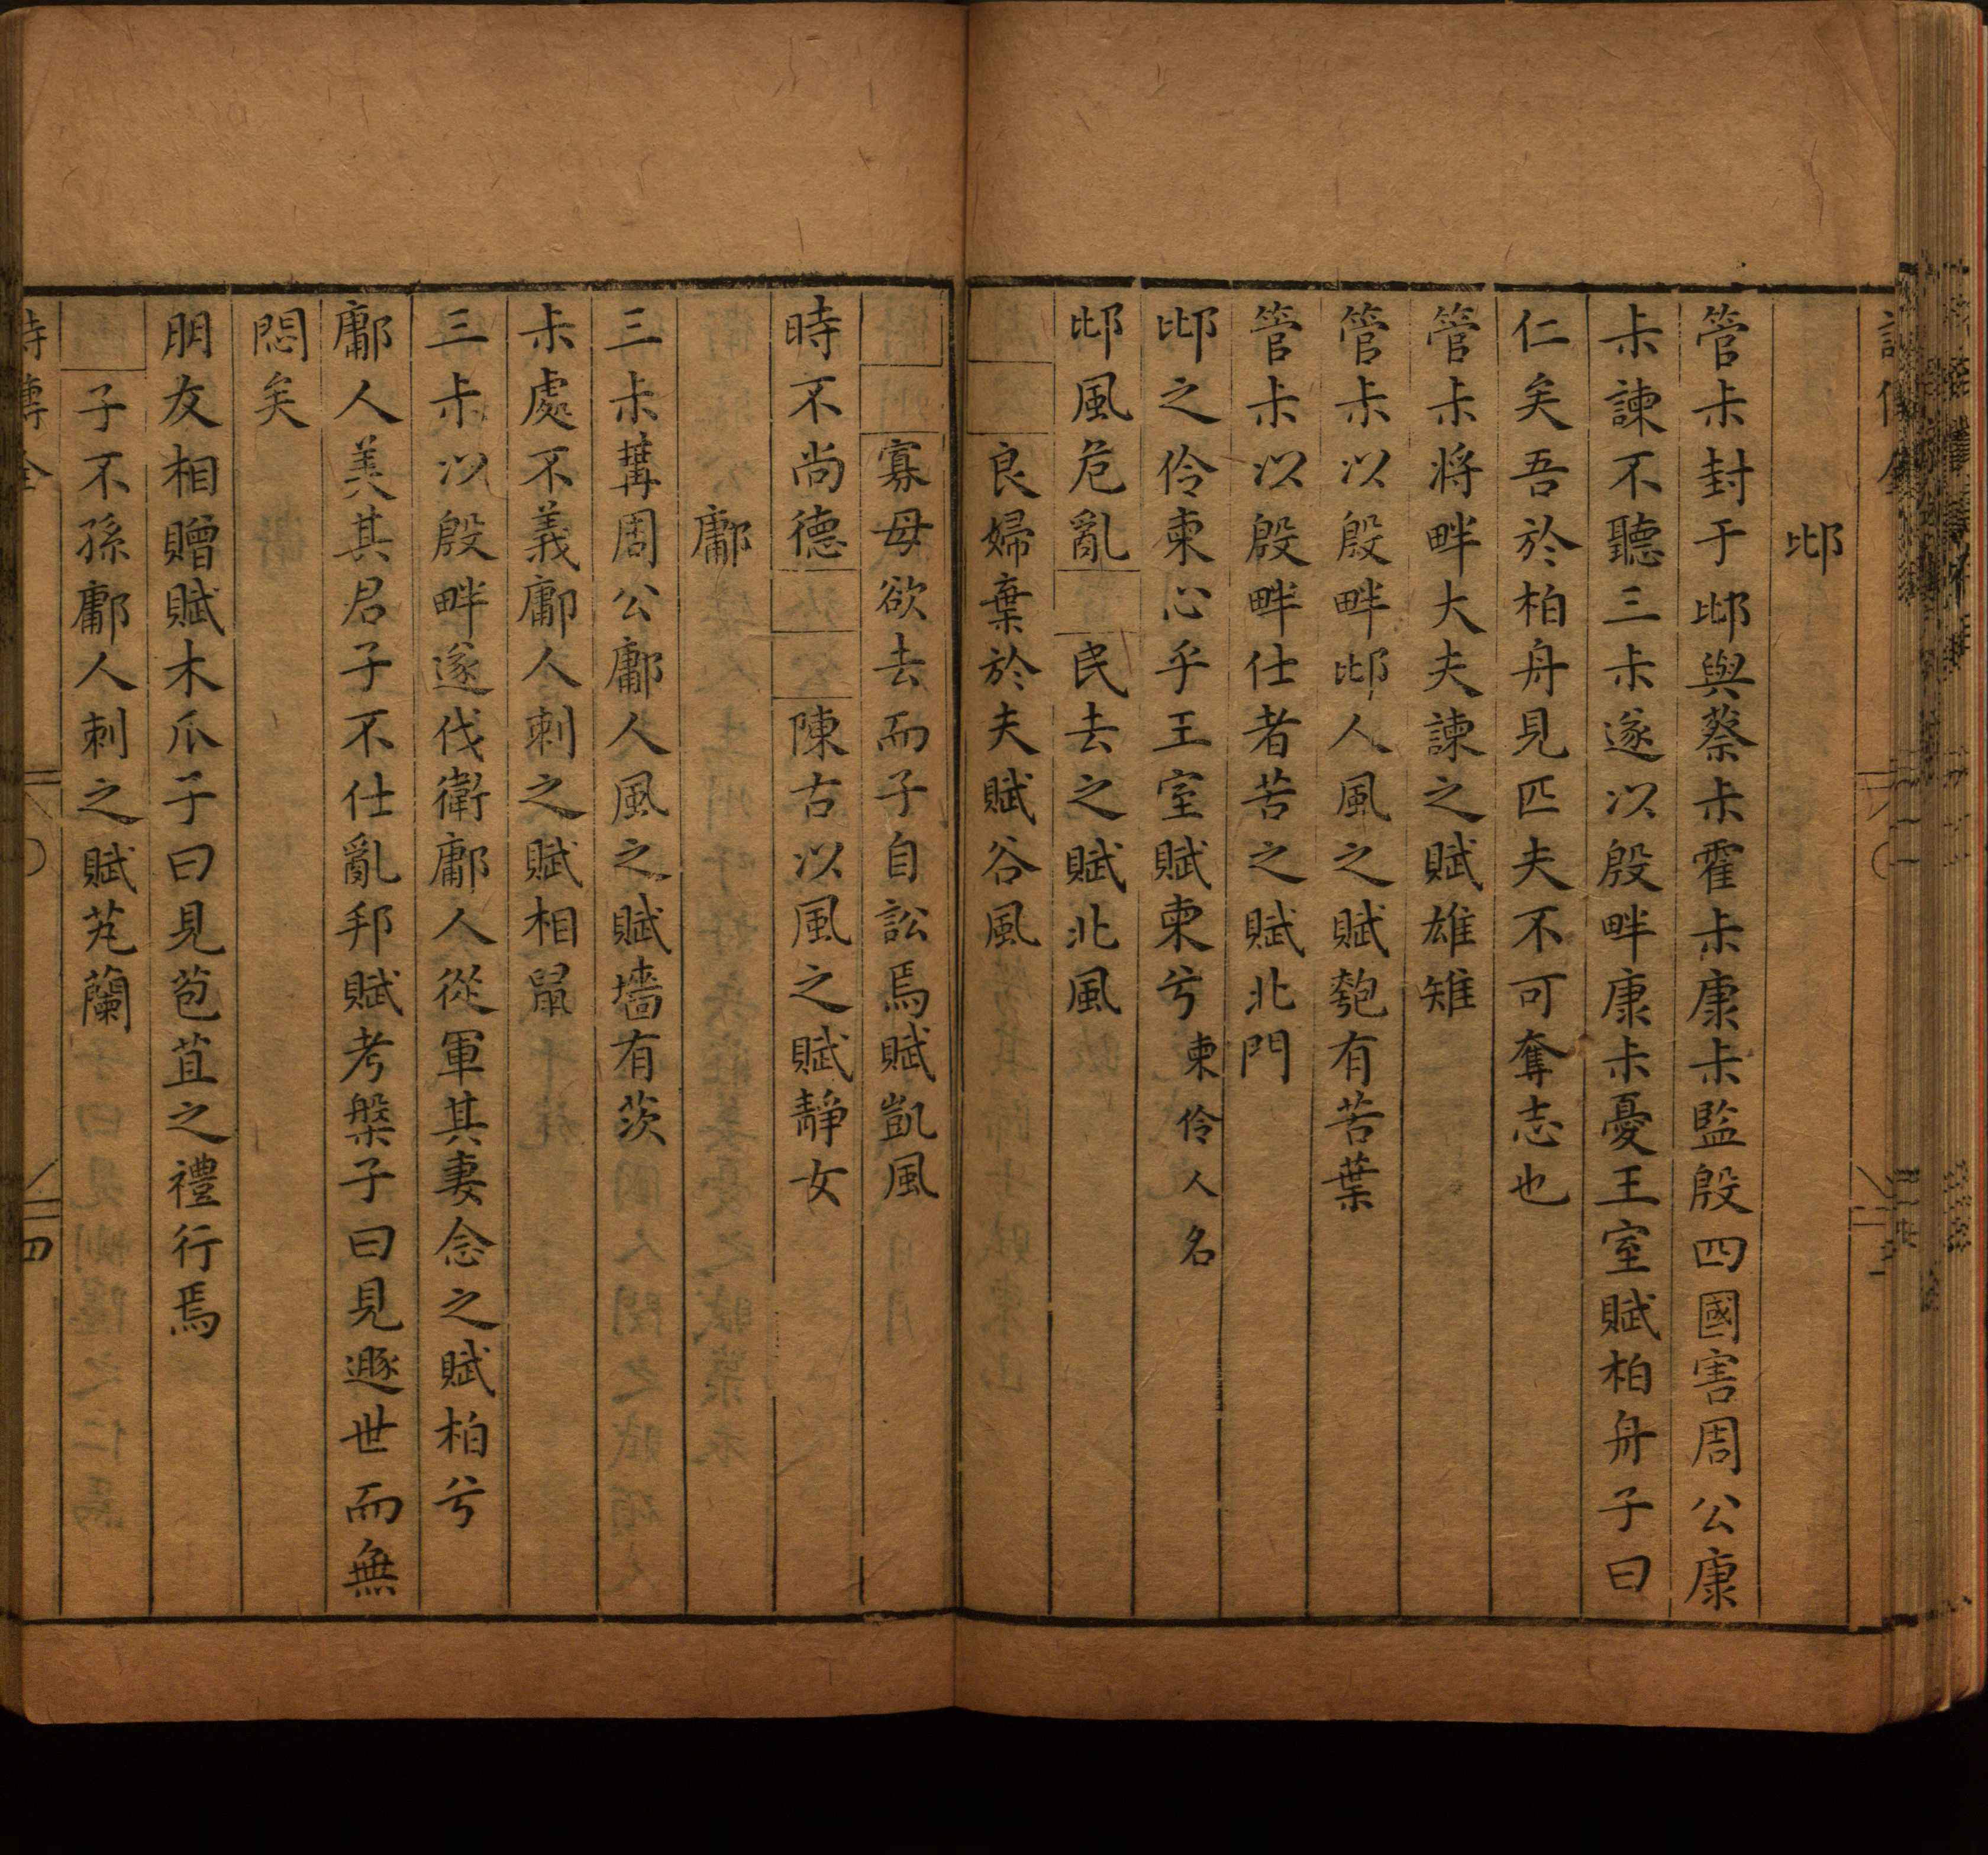 邶
管尗封于邶與蔡尗霍尗康尗監殷四國害周公康
尗諫不聽三尗遂以殷畔康尗憂王室賦柏舟子曰
仁矣吾於柏舟見匹夫不可奪志也
管尗将畔大夫諫之賦雄雉
管尗以殷畔邶人風之賦匏有苦葉
管尗以殷畔仕者苦之賦北門
邶之伶柬心乎王室賦柬兮柬伶人名
邶風危亂□民去之賦北風
□□良婦棄於夫賦谷風
□□寡母欲去而子自訟焉賦凱風
時不尚德□□陳古以風之賦靜女
鄘
三尗冓周公鄘人風之賦墻有茨
尗處不義鄘人刺之賦相鼠
三尗以殷畔遂伐衛鄘人從軍其妻念之賦柏兮
鄘人美其君子不仕亂邦賦考槃子曰見遯世而無
悶矣
朋友相贈賦木瓜子曰見苞苴之禮行焉
□子不孫鄘人刺之賦芄蘭
詩傳全
四